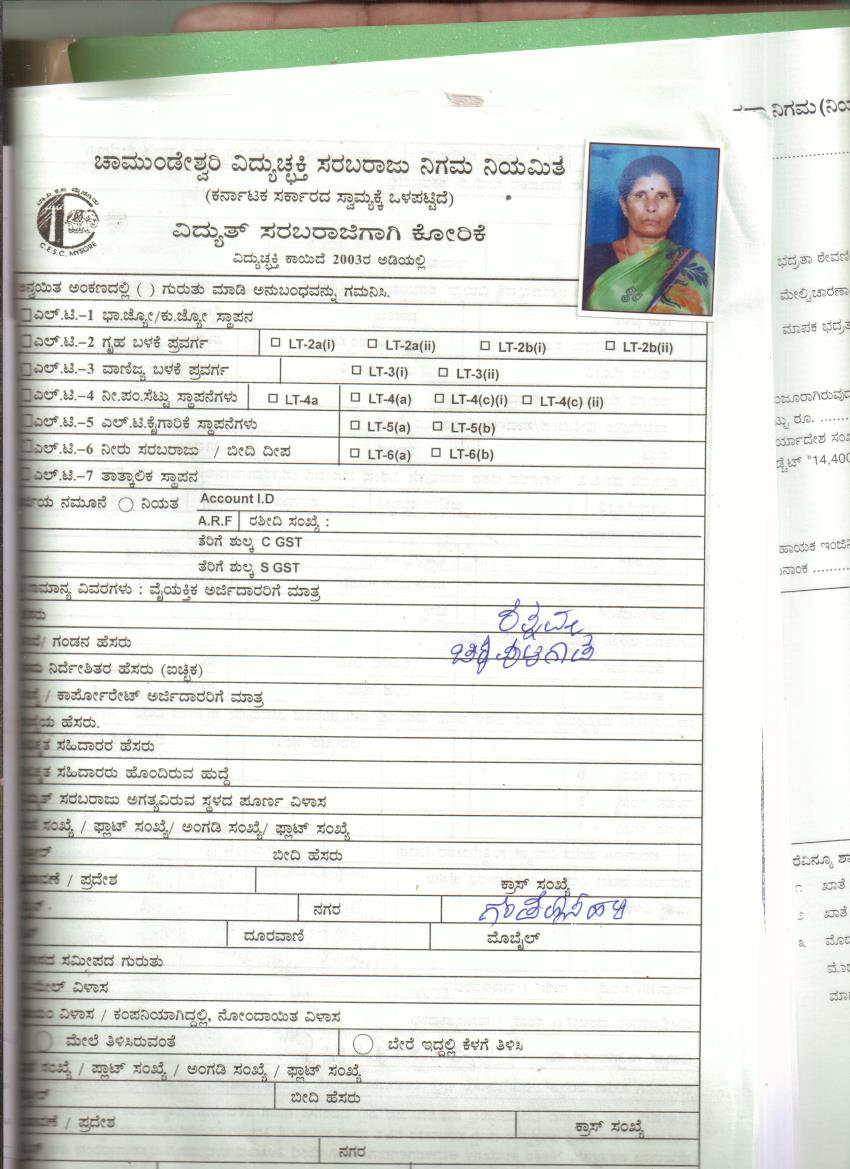 ನಿಗಮ (ನಿಯ
ಚಾಮುಂಡೇಶ್ವರಿ ವಿದ್ಯುಚ್ಛಕ್ತಿ ಸರಬರಾಜು ನಿಗಮ ನಿಯಮಿತ
(ಕರ್ನಾಟಕ ಸರ್ಕಾರದ ಸ್ವಾಮ್ಯಕ್ಕೆ ಒಳಪಟ್ಟಿದೆ)
C.E.S.C. MYSORE
ವಿದ್ಯುತ್ ಸರಬರಾಜಿಗಾಗಿ ಕೋರಿಕೆ
ವಿದ್ಯುಚ್ಛಕ್ತಿ ಕಾಯಿದೆ 2003ರ ಅಡಿಯಲ್ಲಿ
ಅನ್ವಯಿತ ಅಂಕಣದಲ್ಲಿ ( ) ಗುರುತು ಮಾಡಿ ಅನುಬಂಧವನ್ನು ಗಮನಿಸಿ.
ಎಲ್.ಟಿ.-1 ಭಾ.ಜ್ಯೋ/ಕು.ಜ್ಯೋ ಸ್ಥಾಪನ
ಎಲ್.ಟಿ.-2 ಗೃಹ ಬಳಕೆ ಪ್ರವರ್ಗ LT-2a(i) LT-2a(ii) LT-2b(i) LT-2b(ii)
ಎಲ್.ಟಿ.-3 ವಾಣಿಜ್ಯ ಬಳಕೆ ಪ್ರವರ್ಗ LT-3(i) LT-3(ii)
ಎಲ್.ಟಿ.-4 ನೀ.ಪಂ.ಸೆಟ್ಟು ಸ್ಥಾಪನೆಗಳು LT-4a LT-4(a) LT-4(c)(i) LT-4(c) (ii)
ಎಲ್.ಟಿ.-5 ಎಲ್.ಟಿ.ಕೈಗಾರಿಕೆ ಸ್ಥಾಪನೆಗಳು LT-5(a) LT-5(b)
ಎಲ್.ಟಿ.-6 ನೀರು ಸರಬರಾಜು / ಬೀದಿ ದೀಪ LT-6(a) LT-6(b)
ಎಲ್.ಟಿ.-7 ತಾತ್ಕಾಲಿಕ ಸ್ಥಾಪನ
ನಮೂನೆ ನಿಯತ Account I.D
A.R.F ರಶೀದಿ ಸಂಖ್ಯೆ :
ತೆರಿಗೆ ಶುಲ್ಕ C GST
ತೆರಿಗೆ ಶುಲ್ಕ S GST
ವಿವರಗಳು : ವೈಯಕ್ತಿಕ ಅರ್ಜಿದಾರರಿಗೆ ಮಾತ್ರ
ಗಂಡನ ಹೆಸರು
ನಿರ್ದೇಶಿತರ ಹೆಸರು (ಐಚ್ಛಿಕ)
/ ಕಾರ್ಪೋರೇಟ್ ಅರ್ಜಿದಾರರಿಗೆ ಮಾತ್ರ
ಹೆಸರು.
ಸಹಿದಾರರ ಹೆಸರು
ಸಹಿದಾರರು ಹೊಂದಿರುವ ಹುದ್ದೆ
ಸರಬರಾಜು ಅಗತ್ಯವಿರುವ ಸ್ಥಳದ ಪೂರ್ಣ ವಿಳಾಸ
ಸಂಖ್ಯೆ / ಫ್ಲಾಟ್ ಸಂಖ್ಯೆ/ ಅಂಗಡಿ ಸಂಖ್ಯೆ/ ಫ್ಲಾಟ್ ಸಂಖ್ಯೆ
ಬೀದಿ ಹೆಸರು
/ ಪ್ರದೇಶ ಕ್ರಾಸ್ ಸಂಖ್ಯೆ
ನಗರ
ದೂರವಾಣಿ ಮೊಬೈಲ್
ಸಮೀಪದ ಗುರುತು
ವಿಳಾಸ
ವಿಳಾಸ / ಕಂಪನಿಯಾಗಿದ್ದಲ್ಲಿ, ನೋಂದಾಯಿತ ವಿಳಾಸ
ಮೇಲೆ ತಿಳಿಸಿರುವಂತೆ ಬೇರೆ ಇದ್ದಲ್ಲಿ ಕೆಳಗೆ ತಿಳಿಸಿ
ಸಂಖ್ಯೆ / ಪ್ಲಾಟ್ ಸಂಖ್ಯೆ / ಅಂಗಡಿ ಸಂಖ್ಯೆ / ಫ್ಲಾಟ್ ಸಂಖ್ಯೆ
ಬೀದಿ ಹೆಸರು
/ ಪ್ರದೇಶ ಕ್ರಾಸ್ ಸಂಖ್ಯೆ
ನಗರ
ಭದ್ರತಾ ಠೇವಣಿ
ಮೇಲ್ವಿಚಾರಣಾ
ಮಾಪಕ ಭದ್ರತ
ರೂ. .......
"14,400
ರೆವಿನ್ಯೂ ಶಾ
೧ ಖಾತೆ
೨ ಖಾತೆ
೩ ಮೊದ